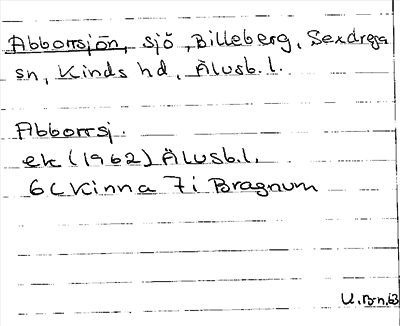 Abborrsjön, sjö, Billeberg, Sexdrega
sn, Kinds hd, Älvsb.l.
Abborrsj.
ek (1962) Älvsb.l.
6C Kinna 7i Bragnum